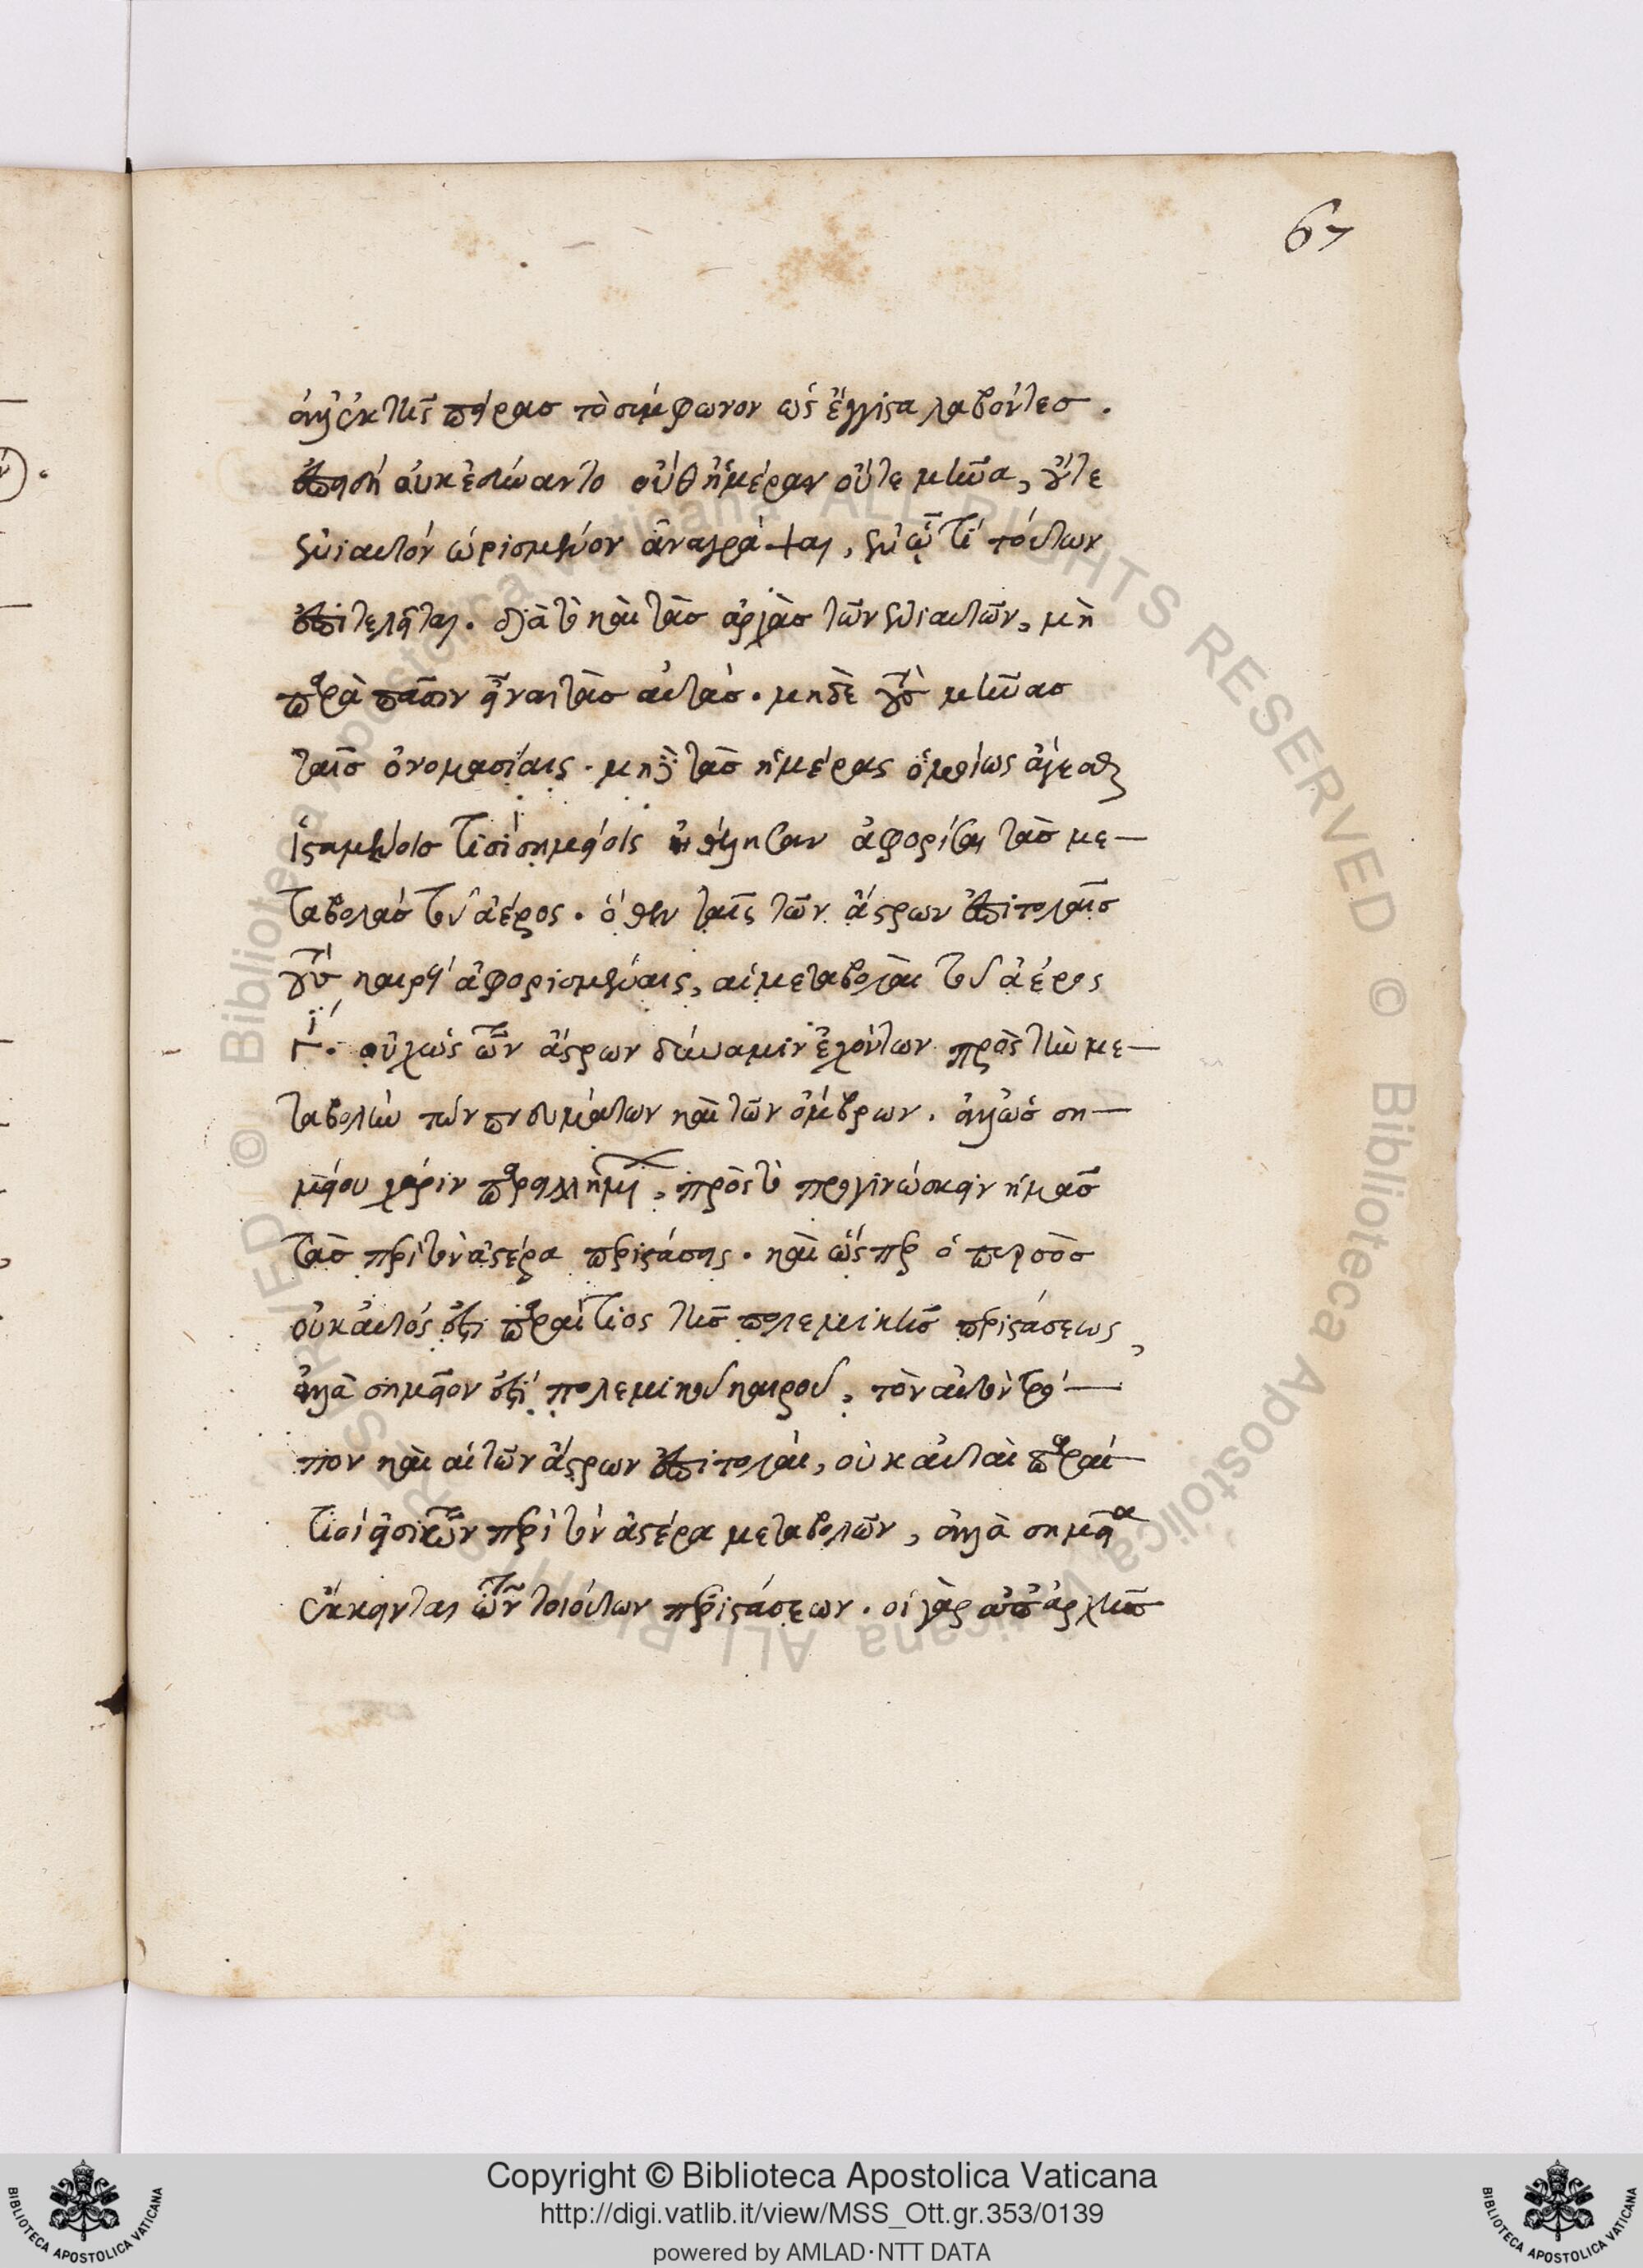 67
ἀλλ' ἐκ τῆς πείρας τὸ σύμφωνον ὡς ἔγγιστα λαβόντες.
ἐπειδὴ οὐκ ἐδύναντο οὔθ' ἡμέραν οὔτε μῆνα, οὔτε
ἐνιαυτὸν ὡρισμένον ἀναγράψαι, ἐν ᾧ τί τούτων
ἐπιτελεῖται. διὰ τὸ καὶ τὰς ἀρχὰς τῶν ἐνιαυτῶν, μὴ
παρὰ πᾶσιν εἶναι τὰς αὐτάς. μηδὲ τοὺς μῆνας
ταῖς ὀνομασίαις. μηδὲ τὰς ἡμέρας ὁμοίως ἄγεσθαι
ἱσταμένοις τισὶ σημείοις ἠθέλησαν ἀφορίσαι τὰς με-
ταβολὰς τοῦ ἀέρος. ὅθεν ταῖς τῶν ἄστρων ἐπιτολαῖς
καιροὶ ἀφορισμέναις, αἱ μεταβολαὶ τοῦ ἀέρος
οὐχ ὡς τῶν ἄστρων δύναμιν ἐχόντων πρὸς τὴν με-
ταβολὴν τῶν πνευμάτων καὶ τῶν ὄμβρων. ἀλλ' ὡς ση-
μείου χάριν πρὸς τὸ προγινώσκειν ἡμᾶς
τὰς περὶ τὸν ἀέρα περιστάσεις. καὶ ὥσπερ ὁ πυρσὸς
οὐκ αὐτός ἐστι παραίτιος τῆς πολεμικῆς περιστάσεως,
ἀλλὰ σημεῖον ἐστὶ πολεμικοῦ καιροῦ, τὸν αὐτὸν τρό-
πον καὶ αἱ τῶν ἄστρων ἐπιτολαὶ, οὐκ αὐταὶ παραί-
τιοί εἰσι τῶν περὶ τὸν ἀέρα μεταβολῶν, ἀλλὰ σημεῖα
ἔκκεινται τῶν τοιούτων περιστάσεων. οἱ γὰρ ἀπ' ἀρχῆς
Copyright © Biblioteca Apostolica Vaticana
http://digi.vatlib.it/view/MSS_Ott.gr.353/0139
powered by AMLAD·NTT DATA